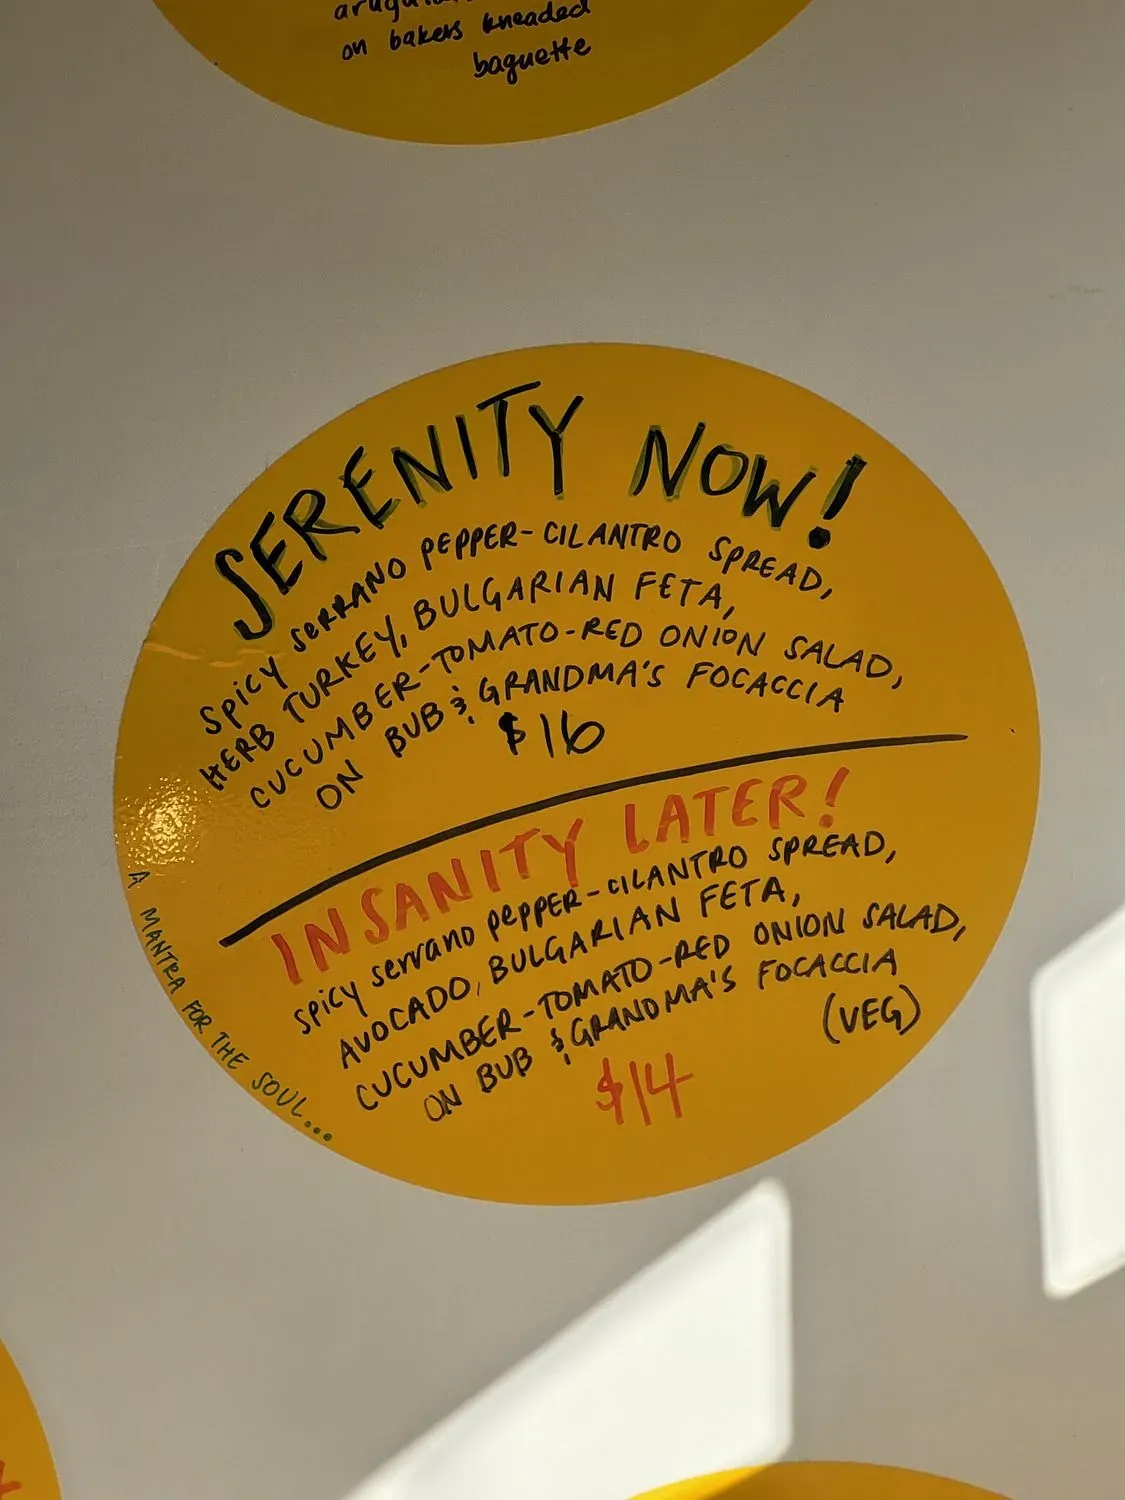 on bakers kneaded
baguette
SERENITY NOW!
SPICY SERRANO PEPPER-CILANTRO SPREAD,
HERB TURKEY, BULGARIAN FETA,
CUCUMBER-TOMATO-RED ONION SALAD,
ON BUB & GRANDMA'S FOCACCIA
$16
INSANITY LATER!
SPICY serrano PEPPER-CILANTRO SPREAD,
AVOCADO, BULGARIAN FETA,
CUCUMBER-TOMATO-RED ONION SALAD,
ON BUB & GRANDMA'S FOCACCIA
(VEG)
$14
A MANTRA FOR THE SOUL...